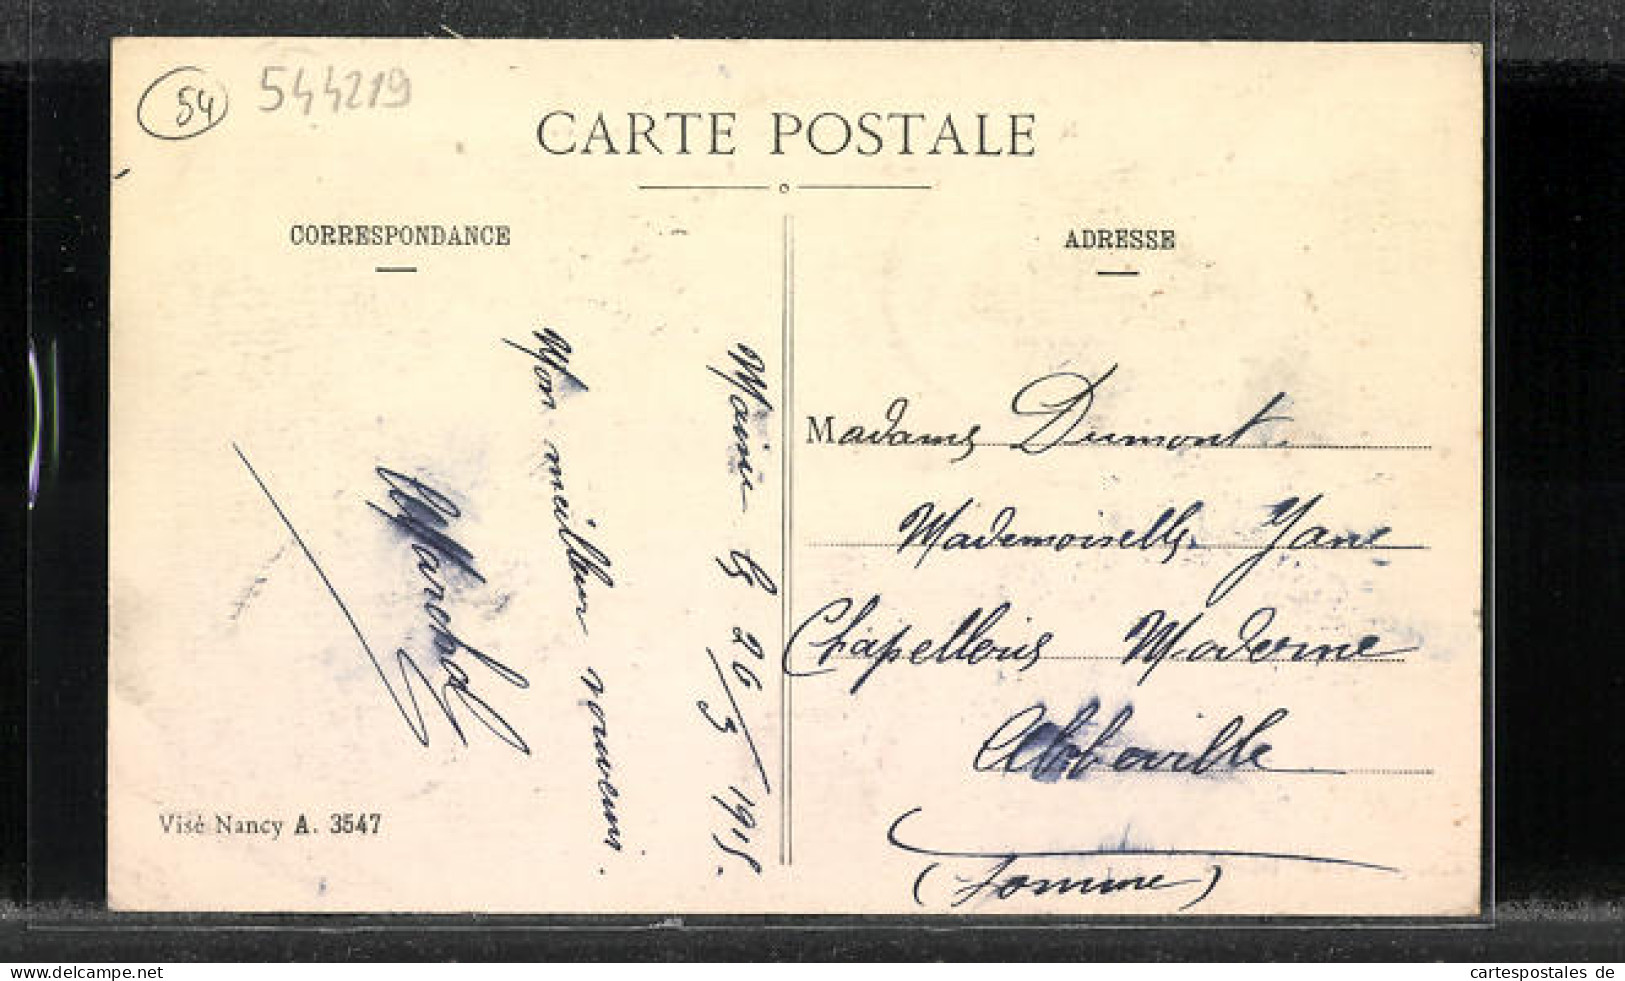 54
544219
CARTE POSTALE
CORRESPONDANCE
ADRESSE
26/3/1915.
Mon meilleur souvenir.
Madame Dumont.
Mademoiselle Jane
Chapellerie Moderne
Abbeville
(Somme)
Visé Nancy A. 3547
www.delcampe.net
cartespostales de